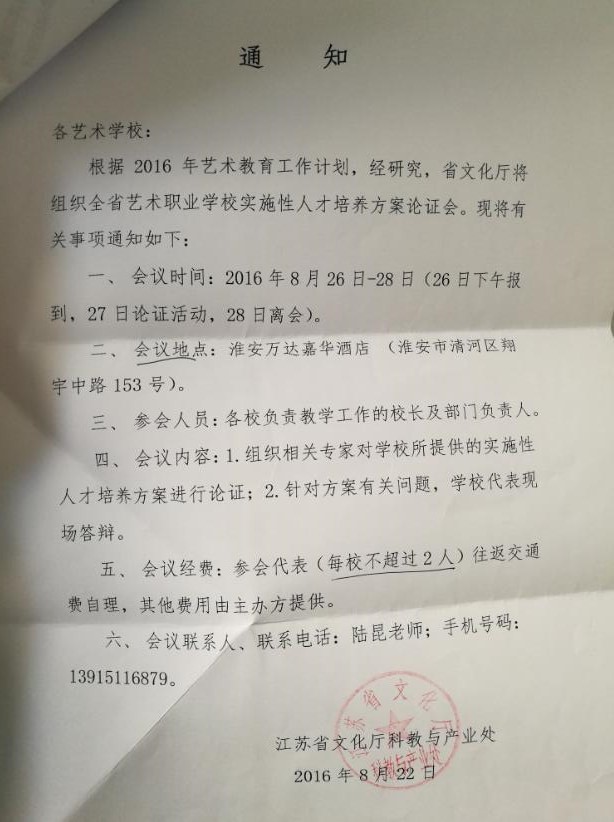 通 知
各艺术学校：
根据 2016 年艺术教育工作计划，经研究，省文化厅将
组织全省艺术职业学校实施性人才培养方案论证会。现将有
关事项通知如下：
一、会议时间：2016 年 8 月 26 日-28 日（26 日下午报
到，27 日论证活动，28 日离会）。
二、会议地点：淮安万达嘉华酒店 （淮安市清河区翔
宇中路 153 号）。
三、参会人员：各校负责教学工作的校长及部门负责人。
四、会议内容：1.组织相关专家对学校所提供的实施性
人才培养方案进行论证；2.针对方案有关问题，学校代表现
场答辩。
五、会议经费：参会代表（每校不超过 2 人）往返交通
费自理，其他费用由主办方提供。
六、会议联系人、联系电话：陆昆老师；手机号码：
13915116879。
江苏省文化厅
科教与产业处
江苏省文化厅科教与产业处
2016 年 8 月 22 日